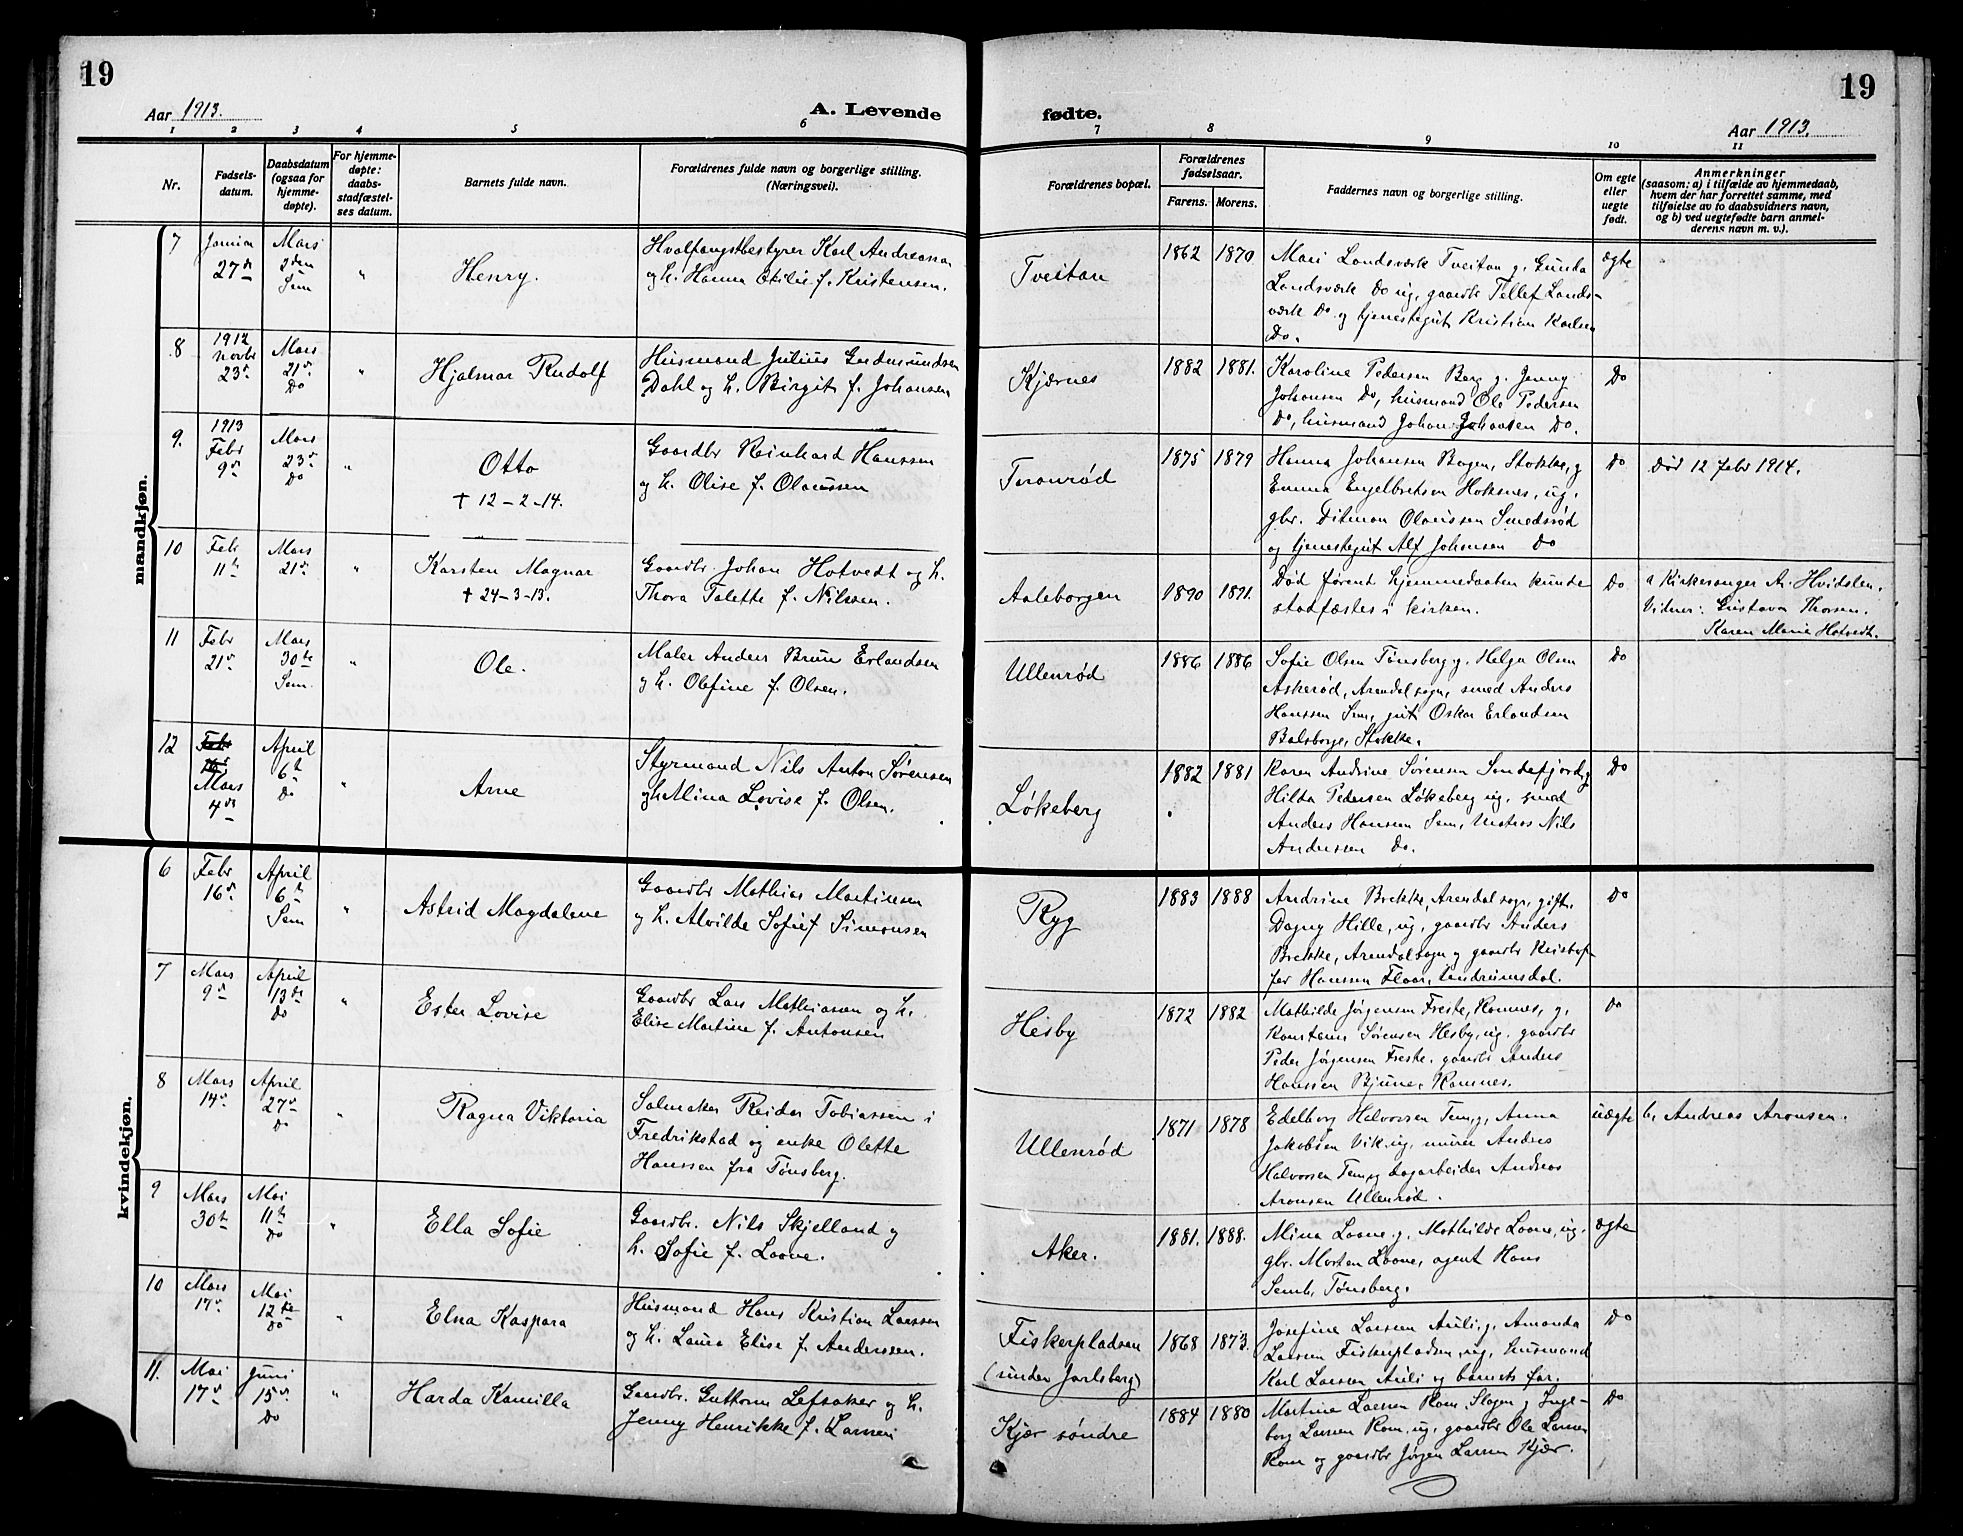 19
Aar 1913.
A. Levende
1 2 3 4 5 6
Nr.
Fødsels-
datum.
Daabsdatum
(ogsaa for
hjemme-
døpte).
For hjemme-
døpte:
daabs-
stadfæstel-
ses datum.
Barnets fulde navn.
Forældrenes fulde navn og borgerlige stilling.
(Næringsvei).
mandkjøn.
7
27de
Mars
2den
Sem
"
Henry.
Hvalfangstbestyrer Karl Andreassen
og h. Hanna Otilie f. Kristensen.
8
1912
Novbr
23de
Mars
21de
Do
"
Hjalmar Rudolf
Husmand Julius
Dahl og h. Birgit f. Johansen
9.
1913
Febr
9de
Mars
23de
Do
"
Otto
† 12-2-14.
Gaardbr Reinhard Hanssen
og h. Olise f. Olaussen
10
Febr
11te
Mars
21de
"
Karsten Magnar
† 24-3-13.
Gaardbr. Johan Hotvedt og h.
Thora Talette f. Nilssen.
11
Febr
21de
Mars
30te
Sem.
"
Ole.
Maler Anders Brun Erlandsen
og h. Olefine f. Olsen.
12
Febr
16de
Mars
4de
April
6te
Do
"
Arne
Styrmand Nils Anton Sørensen
og h. Mina Lovise f. Olsen.
kvindekjøn.
6
Febr
16de
April
6te
Sem
"
Astrid Magdalene
Gaardbr Mathias Martinsen
og h. Alvilde Sofie f. Simonsen
7
Mars
9de
April
13de
Do
"
Ester Lovise
Gaardbr Lars Mathiassen og h.
Elise Martine f. Antonsen
8
Mars
14de
April
27de
Do
"
Ragna Viktoria
Salmaker Reidar Tobiassen i
Fredrikstad og enke Olette
Hanssen fra Tønsberg.
9
Mars
30te
Mai
11te
Do
"
Ella Sofie
Gaardbr. Nils Skjelland og
h. Sofie f. Loone.
10
Mars
17de
Mai
12te
Do
"
Elna Kaspara
Husmand Hans Kristian Larssen
og h. Laura Elise f. Anderssen.
11.
Mai
17de
Juni
15de
Do
"
Harda Kamilla
Gaardbr. Guttorm Lefsaker og h.
Jenny Henrikke f. Larsen
19
fødte.
Aar 1913.
7 8 9 10 11
Forældrenes bopæl.
Forældrenes
fødselsaar.
Farens. Morens.
Faddernes navn og borgerlige stilling.
Om egte
eller
uegte
født.
Anmerkninger
(saasom: a) i tilfælde av hjemmedaab,
hvem der har forrettet samme, med
tilføielse av to daabsvidners navn,
og b) ved uegtefødte barn anmel-
derens navn m. v.).
Tveitan
1862 1870
Mari Landsværk Tveitan g. Gunda
Landsværk Do ug, gaardbr Tellef Lands-
værk Do og tjenestegut Kristian Karlsen
Do.
egte
Kjærnes
1882 1881.
Karoline Pedersen Berg g. Jenny
Johansen Do, husmand Ole Pedersen
Do, husmand Johan Johansen Do.
Do
Toranrød
1875 1879
Hanna Johansen Bogen, Stokke, g
Emma Engelbretsen Hoksnes, ug.
gbr. Ditman Olaussen Smedsrød
og tjenestegut Alf Johansen Do
Do
Død 12 Febr 1914.
Aaleborgen
1890 1891.
Død førend hjemmedaaben kunde
stadfæstes i kirken.
Do
a Kirkesanger A. Hvidsten.
Vidner: Gustava Thorsen.
Karen Marie Hotvedt.
Ullenrød
1886 1886
Sofie Olsen Tønsberg g. Helga Olsen
Askerød, Arendal sogn, smed Anders
Hanssen Sem, gut Oskar Erlandsen
Balsborge, Stokke.
Do
Løkeberg
1882 1881
Karen Andrine Sørensen Sandefjord g
Hilda Pedersen Løkeberg ug, smed
Anders Hanssen Sem, matros Nils
Anderssen Do.
Do
Ryg
1883 1888
Andrine Brekke, Arendal sogn, gift.
Dagny Hille, ug, gaardbr Anders
Brekke, Arendal sogn og gaardbr Kristof-
fer Hanssen Flaar, Undrumsdal.
Do
Hesby
1872 1882
Mathilde Jørgensen Freste, Ramnes, g.
Konstanse Sørensen Hesby, ug. gaardbr
Peder Jørgensen Freste, gaardb Anders
Hanssen Bjune, Ramnes.
Do
Ullenrød
1871 1878
Edelborg Halvorsen Tem, g, Anna
Jakobsen Vik, ug, murer Andreas
Halvorsen Tem, og dagarbeider Andreas
Aronsen Ullenrød.
uægte
b. Andreas Aronsen.
Aker.
1881. 1888.
Mina Loone g. Mathilde Loone, ug.
gbr. Morten Loone, agent Hans
Semb, Tønsberg.
egte
Fiskerpladsen
(under Jarlsberg)
1868 1873.
Josefine Larsen Auli, g, Amanda
Larsen Fiskerpladsen, ug, husmand
Karl Larsen Auli og barnets far.
Do
Kjær søndre
1884 1880
Martine Larsen Rom, Slagen g Inge-
borg Larsen Rom, ug, gaardbr Ole Larsen
Rom og gaardbr Jørgen Larsen Kjær.
Do